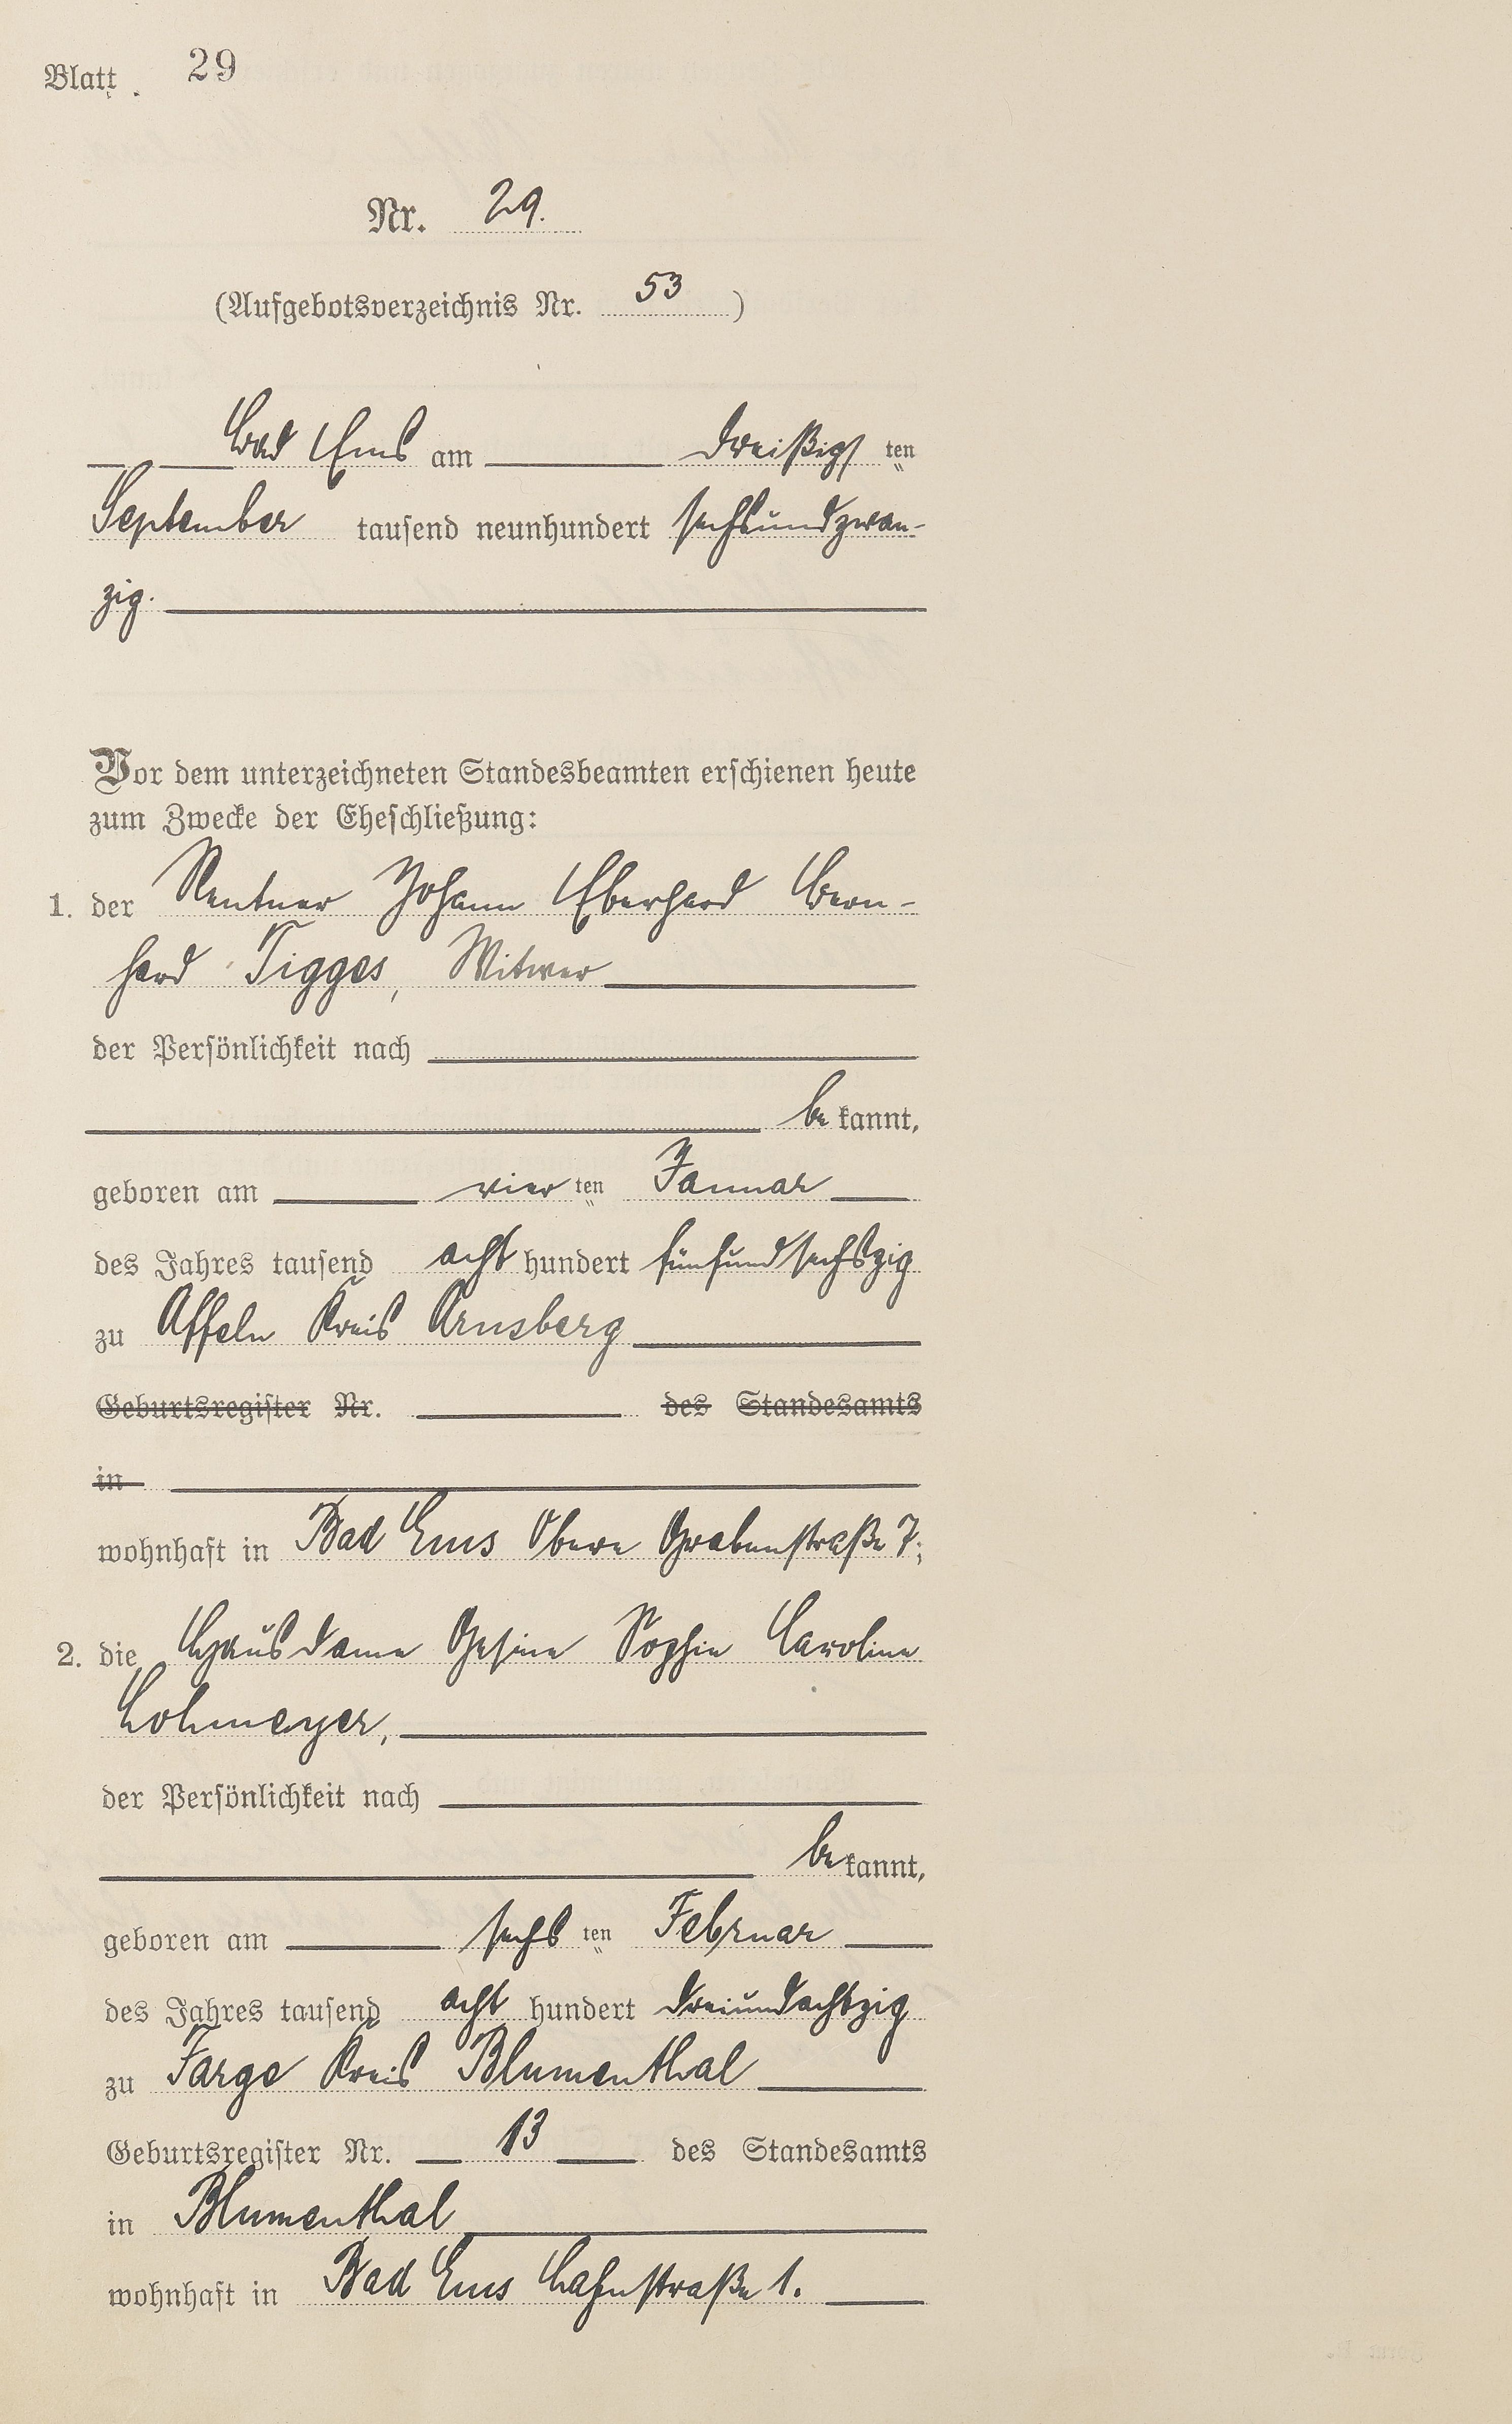 Blatt 29
Nr. 29.
(Aufgebotsverzeichnis Nr. 53)
Bad Ems am dreißigsten
September tausend neunhundert sechsundzwan-
zig.
Vor dem unterzeichneten Standesbeamten erschienen heute
zum Zwecke der Eheschließung:
1. der Rentner Johann Eberhard Bern-
hard Tigges, Witwer
der Persönlichkeit nach
bekannt,
geboren am vierten Januar
des Jahres tausend achthundert fünfundsechszig
zu Affeln Kreis Arnsberg
Geburtsregister Nr. des Standesamts
in
wohnhaft in Bad Ems Obere Grabenstraße 7;
2. die Hausdame Gesine Sophie Caroline
Lohmeyer,
der Persönlichkeit nach
bekannt,
geboren am sechsten Februar
des Jahres tausend achthundert dreiundachtzig
zu Farge Kreis Blumenthal
Geburtsregister Nr. 13 des Standesamts
in Blumenthal
wohnhaft in Bad Ems Lahnstraße 1.